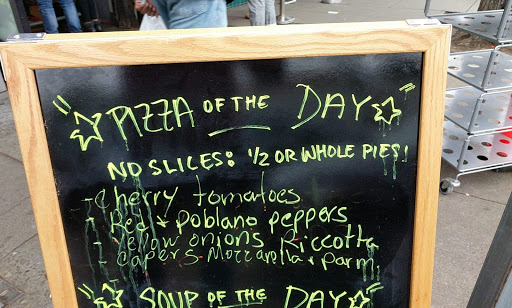 PIZZA OF THE DAY
NO SLICES: 1/2 OR WHOLE PIES!
- Cherry tomatoes
- Red + Poblano peppers
- Yellow onions Riccotta
- Capers Mozzarella + Parm
SOUP OF THE DAY